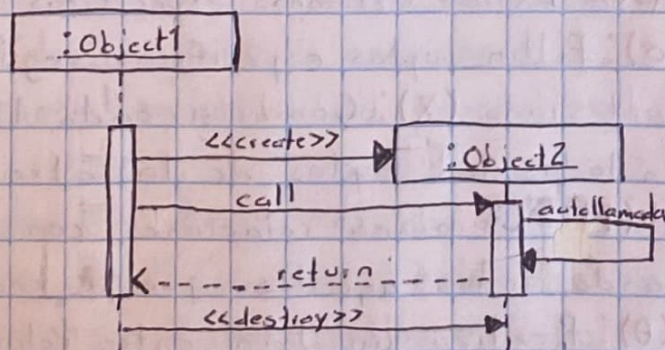 :Object1
<<create>>
:Object2
call
autollamada
return
<<destroy>>